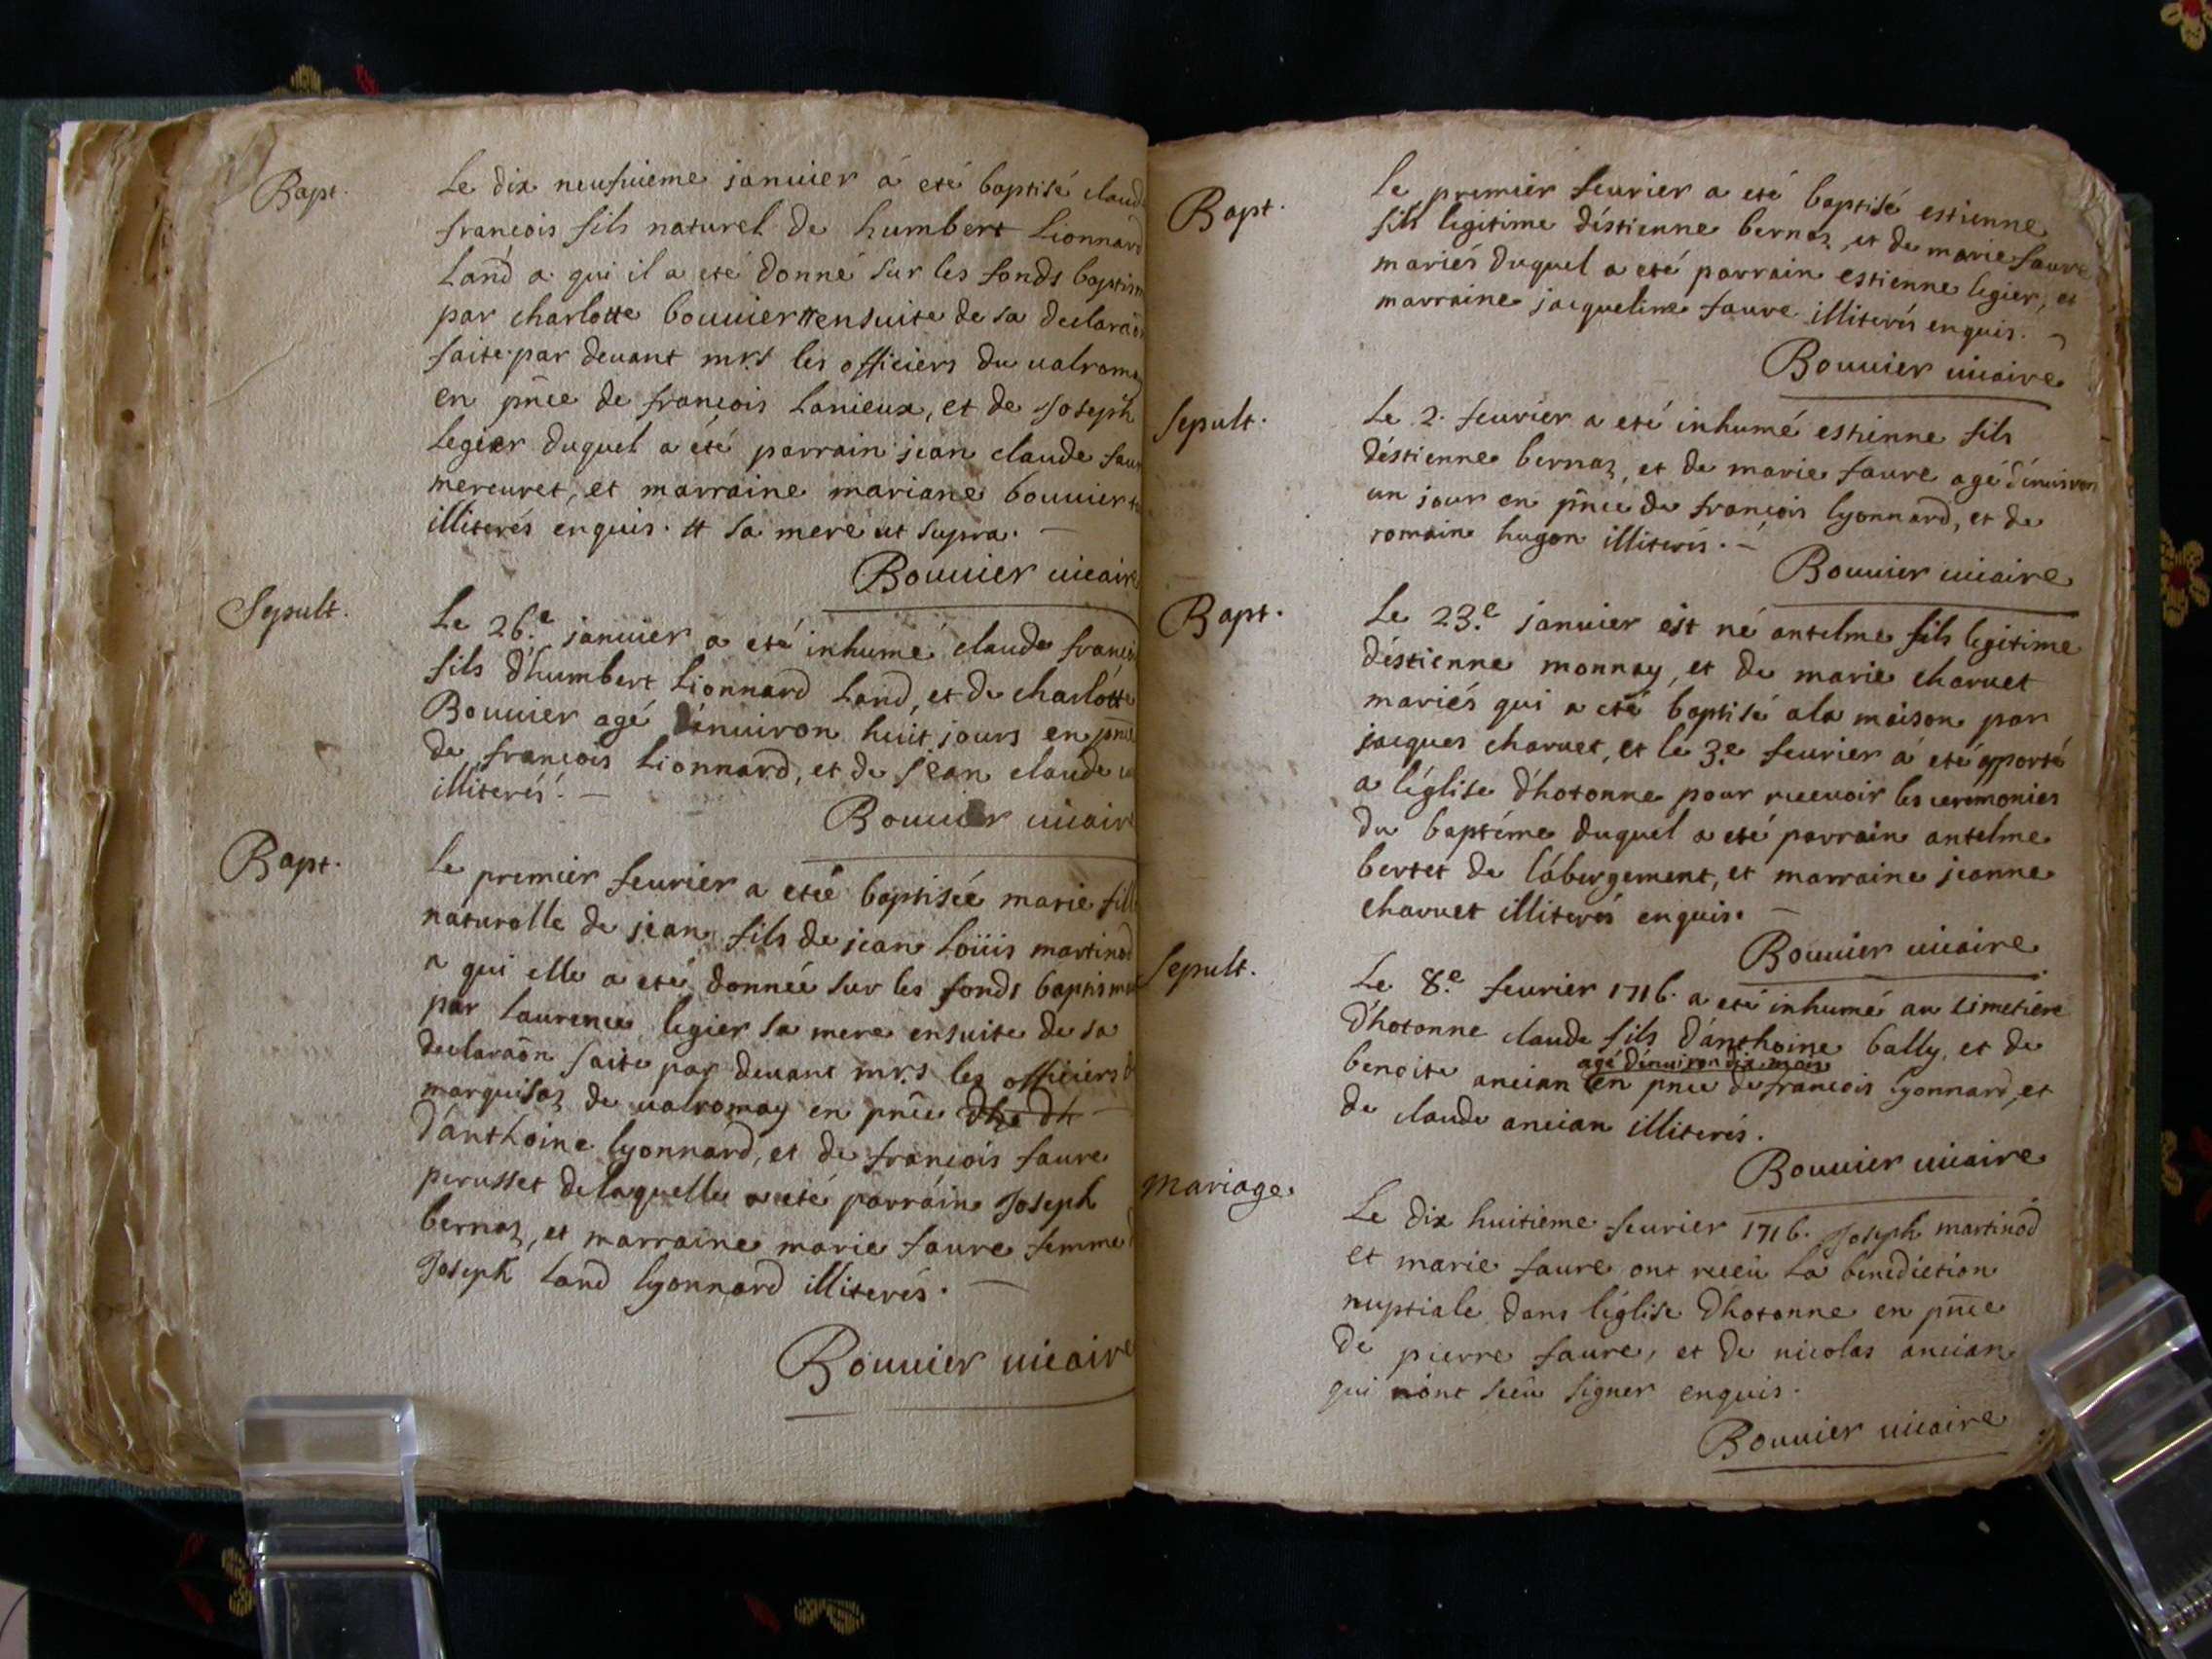 Bapt.
Le dix neufuieme januier á eté baptisé claud
francois fils naturel de humbert Lionnard
Land a qui il a eté donné sur les fonds baptism
par charlotte bouuier # ensuite de sa declaraon
faite par deuant mrs les officiers du ualromey
en pnce de francois Lanieux, et de Joseph
Legier duquel a été parrain jean claude faur
mercuret, et marraine mariane bouuier
illiterés enquis. # sa mere ut supra. —
Bouuier uicaire
Sepult.
Le 26.e januier a eté inhumé claude francois
fils d'humbert Lionnard Land, et de charlotte
Bouuier agé d'enuiron huit jours en pnce
de francois Lionnard, et de jean claude
illiterés. —
Bouuier uicaire
Bapt.
Le premier feurier a etée baptisée marie fille
naturelle de jean fils de jean Loüis martinod
a qui elle a eté donnée sur les fonds baptismaux
par Laurence legier sa mere ensuite de sa
declaraon faite par deuant mrs les officiers d
marquisaz de ualromay en pnce dhe dh —
d'anthoine lyonnard, et de francois faure
perusset de laquelle a eté parrain Joseph
bernaz, et marraine marie faure femme d
Joseph Land lyonnard illiterés. —
Bouuier uicaire
Bapt.
le premier feurier a eté baptisé estienne
fils legitime d'estienne bernaz, et de marie faure
mariés duquel a eté parrain estienne legier, et
marraine jacqueline faure illiterés enquis. —
Bouuier uicaire
Sepult.
Le 2. feurier a eté inhumé estienne fils
d'estienne bernaz, et de marie faure agé d'enuiron
un jour en pnce de francois lyonnard, et de
romain hugon illiterés. —
Bouuier uicaire
Bapt.
Le 23.e januier est né antelme fils legitime
d'estienne monnay, et de marie charuet
mariés qui a eté baptisé a la maison par
jacques charuet, et le 3.e feurier á eté apporté
a l'église d'hotonne pour receuoir les ceremonies
du baptéme duquel a eté parrain antelme
bertet de l'abergement, et marraine jeanne
charuet illiterés enquis. —
Bouuier uicaire
Sepult.
Le 8.e feurier 1716. a eté inhumé au cimetiére
d'hotonne claude fils d'anthoine bally, et de
agé d'enuiron dix mois
benoite ancian en pnce de francois lyonnard, et
de claude ancian illiterés.
Bouuier uicaire
Mariage.
Le dix huitieme feurier 1716. Joseph martinod
et marie faure ont receu la benediction
nuptiale dans l'église d'hotonne en pnce
de pierre faure, et de nicolas ancian
qui n'ont sceu signer enquis.
Bouuier uicaire